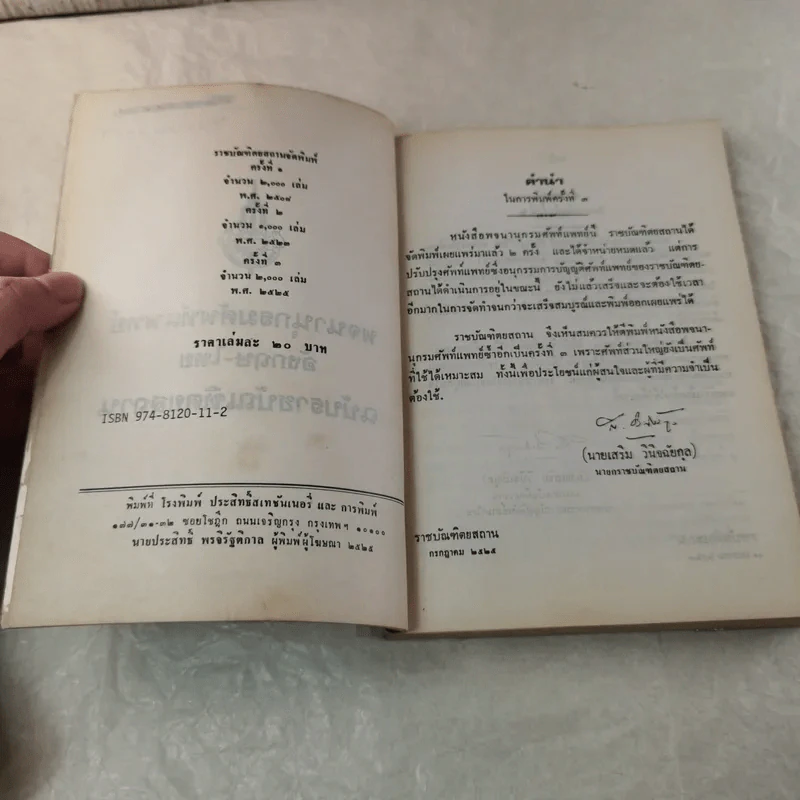 ราชบัณฑิตยสถานจัดพิมพ์
ครั้งที่ ๑
จำนวน ๒,๐๐๐ เล่ม
พ.ศ. ๒๕๐๔
ครั้งที่ ๒
จำนวน ๑,๐๐๐ เล่ม
พ.ศ. ๒๕๒๓
ครั้งที่ ๓
จำนวน ๒,๐๐๐ เล่ม
พ.ศ. ๒๕๒๕
ราคาเล่มละ ๒๐ บาท
ISBN 974-8120-11-2
พิมพ์ที่ โรงพิมพ์ ประสิทธิ์สเทชันเนอรี่ และ การพิมพ์
๑๗๗/๓๑-๓๒ ซอยโชฎึก ถนนเจริญกรุง กรุงเทพฯ ๑๐๑๐๐
นายประสิทธิ์ พรจิรัฐติกาล ผู้พิมพ์ผู้โฆษณา ๒๕๒๕
คำนำ
ในการพิมพ์ครั้งที่ ๓
หนังสือพจนานุกรมศัพท์แพทย์นี้ ราชบัณฑิตยสถานได้
จัดพิมพ์เผยแพร่มาแล้ว ๒ ครั้ง และได้จำหน่ายหมดแล้ว แต่การ
ปรับปรุงศัพท์แพทย์ซึ่งอนุกรรมการบัญญัติศัพท์แพทย์ของราชบัณฑิตย-
สถานได้ดำเนินการอยู่ในขณะนี้ ยังไม่แล้วเสร็จและจะต้องใช้เวลา
อีกมากในการจัดทำจนกว่าจะเสร็จสมบูรณ์และพิมพ์ออกเผยแพร่ได้
ราชบัณฑิตยสถาน จึงเห็นสมควรให้ตีพิมพ์หนังสือพจนา-
นุกรมศัพท์แพทย์ซ้ำอีกเป็นครั้งที่ ๓ เพราะศัพท์ส่วนใหญ่ยังเป็นศัพท์
ที่ใช้ได้เหมาะสม ทั้งนี้เพื่อประโยชน์แก่ผู้สนใจและผู้ที่มีความจำเป็น
ต้องใช้.
(นายเสริม วินิจฉัยกุล)
นายกราชบัณฑิตยสถาน
ราชบัณฑิตยสถาน
กรกฎาคม ๒๕๒๕